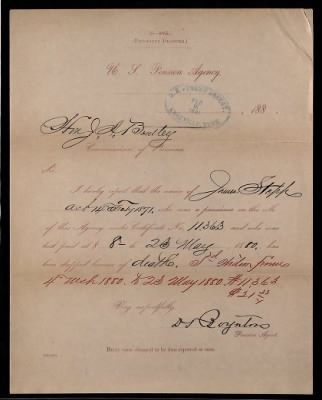 U. S. Pension Agency,
188
Hon J. A. Bentley
Commissioner of Pensions.
Sir:
I hereby report that the name of James Stapp
Act 14 Feby 1871, who was a pensioner on the rolls
of this Agency under Certificate No. 11363 and who was
last paid at $ 8- to 23 May, 1880, has
been dropped because of death.
4 Mch 1880. to 23 May 1880.
Very respectfully,
D. S. Boynton
Pension Agent.